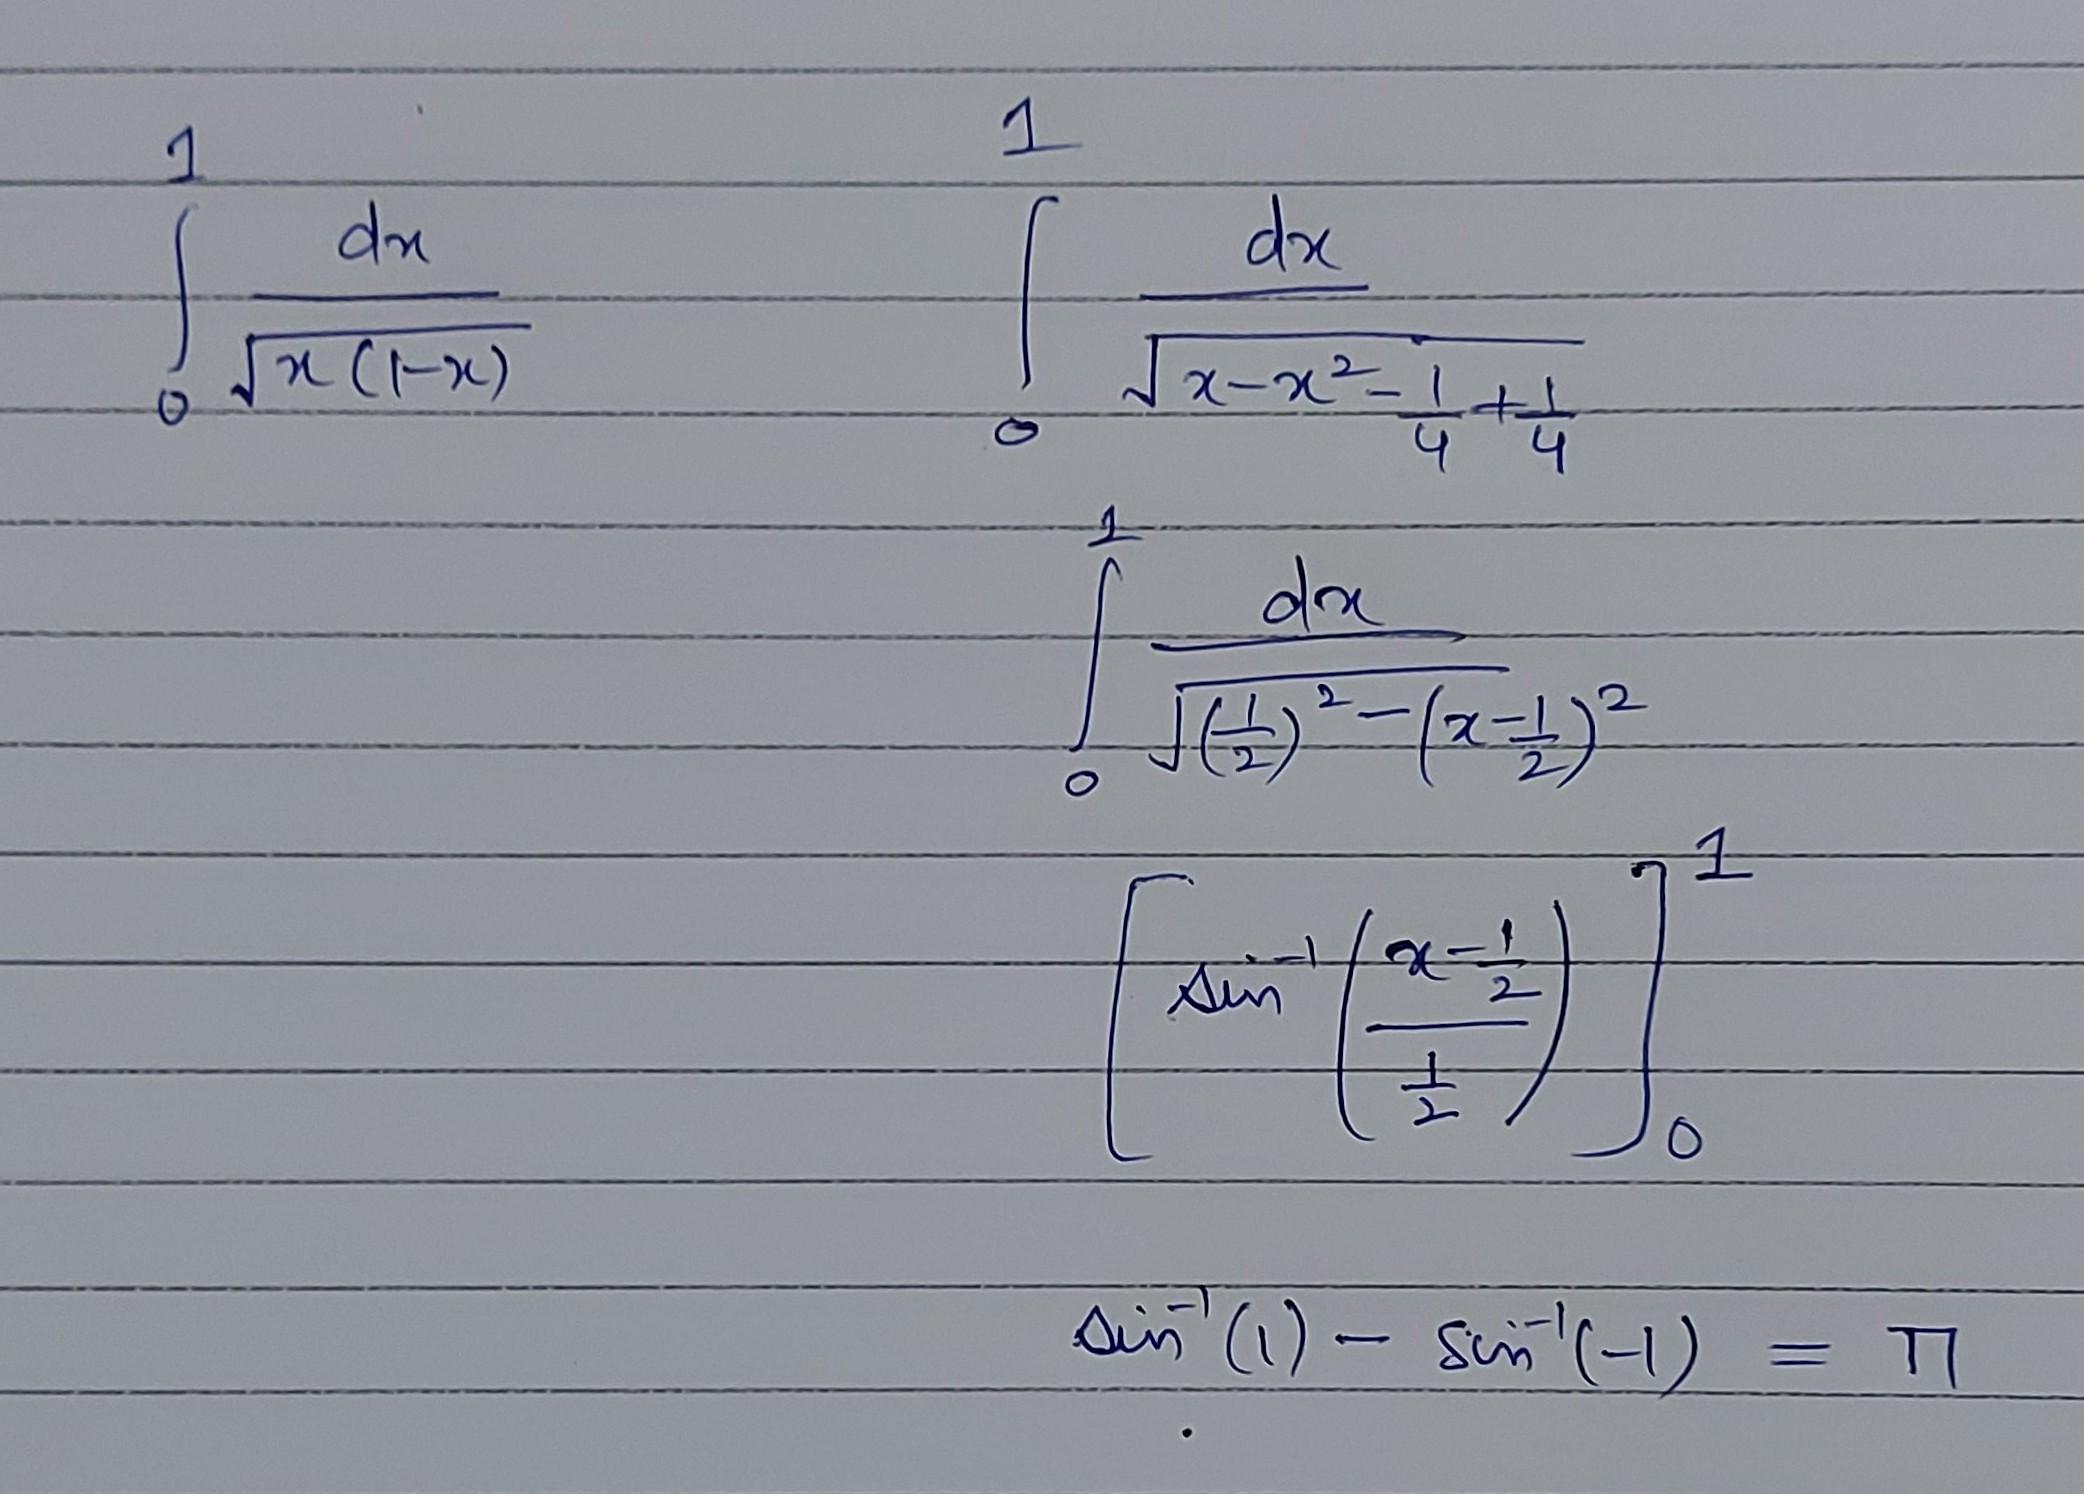 ∫₀¹ dx / √(x(1-x))
∫₀¹ dx / √(x - x² - 1/4 + 1/4)
∫₀¹ dx / √((1/2)² - (x - 1/2)²)
[sin⁻¹((x - 1/2) / (1/2))]₀¹
sin⁻¹(1) - sin⁻¹(-1) = π